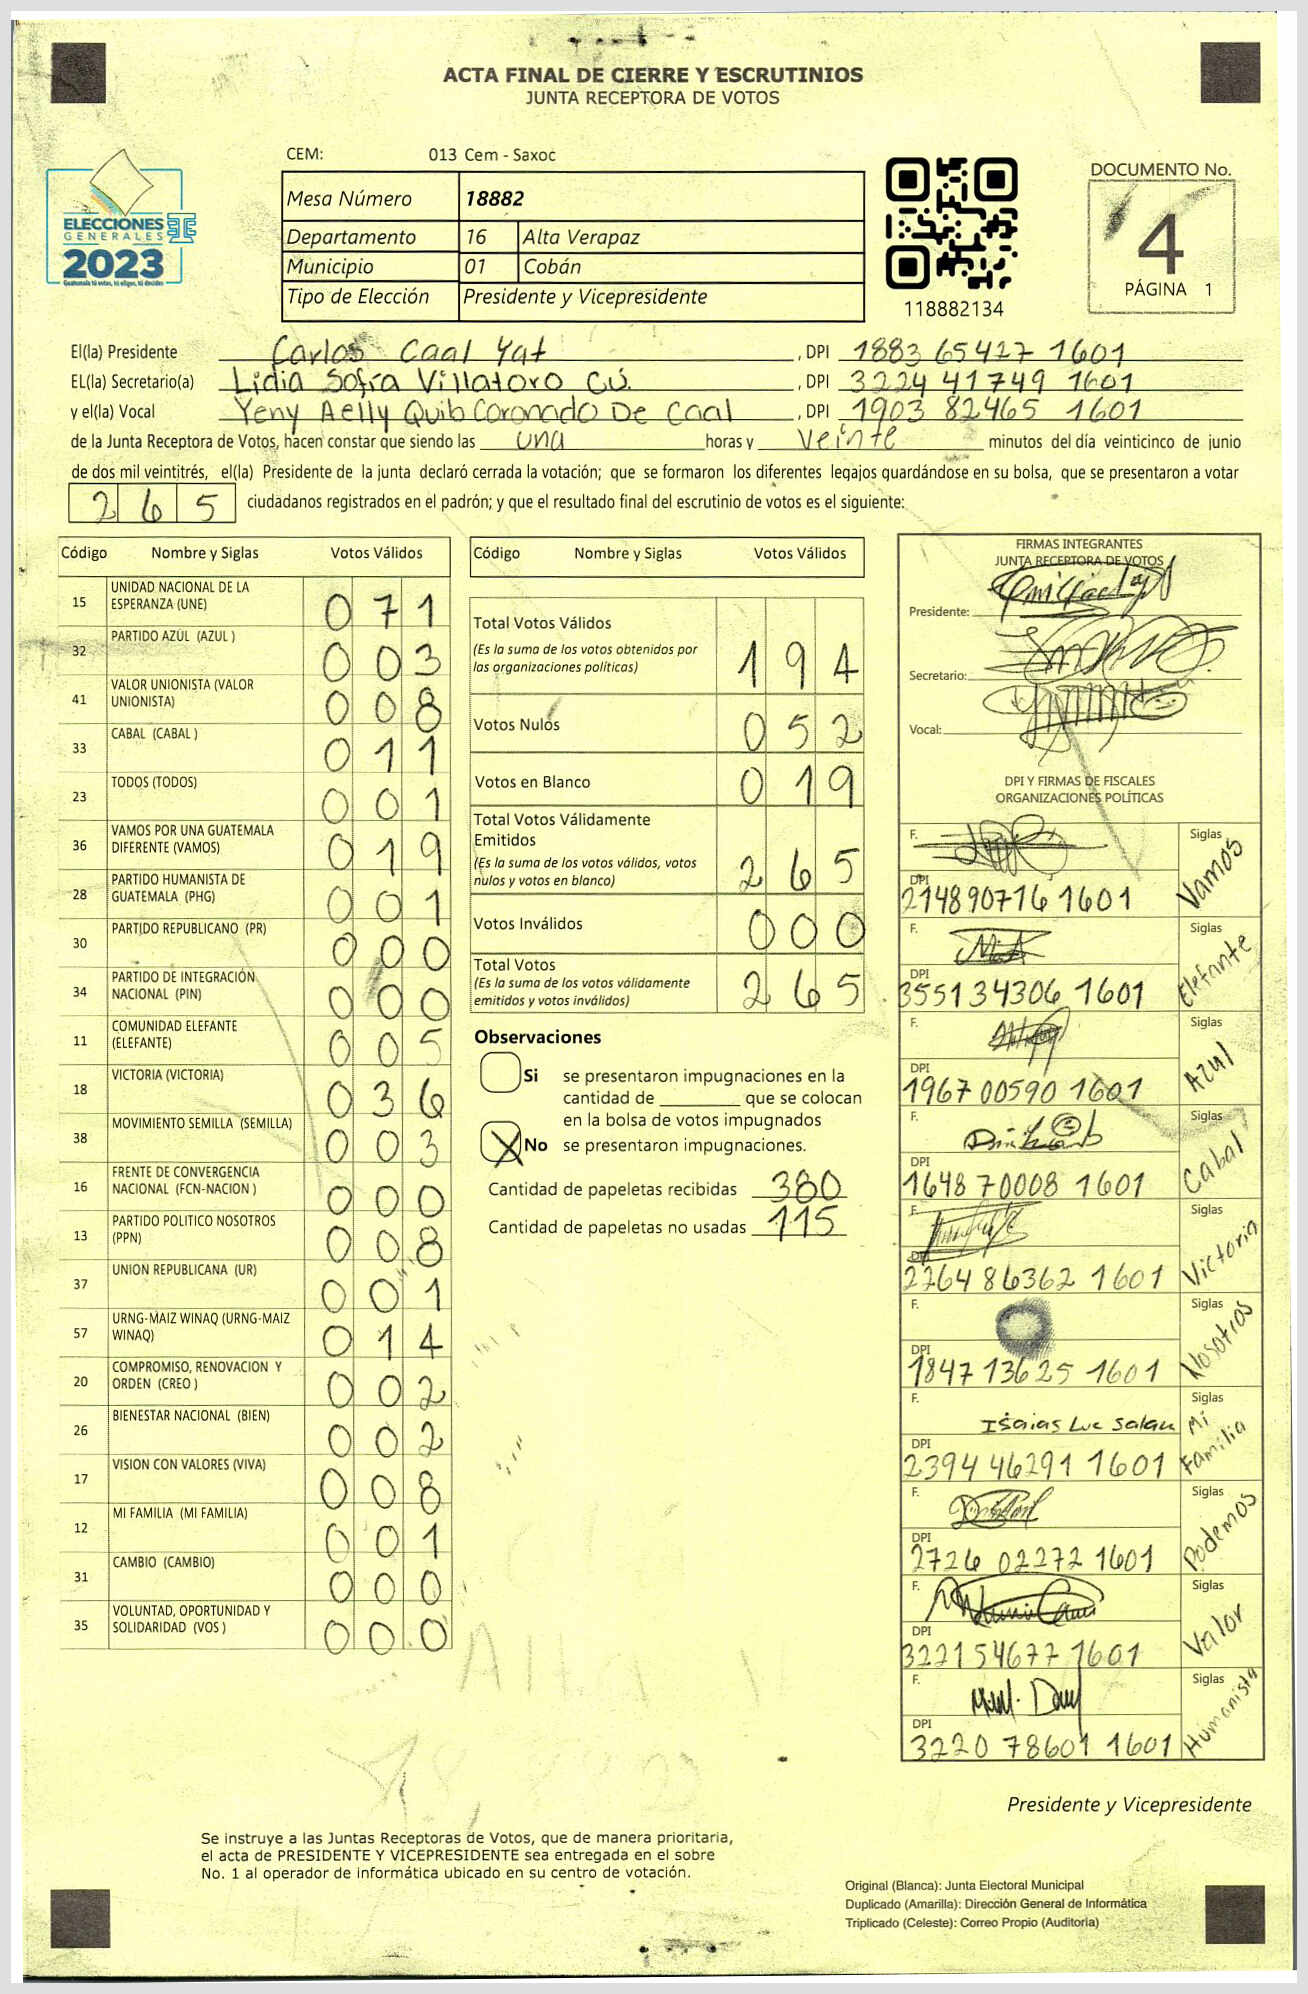 ACTA FINAL DE CIERRE Y ESCRUTINIOS
JUNTA RECEPTORA DE VOTOS
CEM: 013 Cem - Saxoc
ELECCIONES
GENERALES
2023
Guatemala tú votas, tú eliges, tú decides
Mesa Número 18882
Departamento 16 Alta Verapaz
Municipio 01 Cobán
Tipo de Elección Presidente y Vicepresidente
118882134
DOCUMENTO No.
4
PÁGINA 1
El(la) Presidente Carlos Caal Yat, DPI 1883 65427 1601
EL(la) Secretario(a) Lidia Sofía Villatoro Cú., DPI 3224 41749 1601
y el(la) Vocal Yeny Aelly Quib Coronado De Caal, DPI 1903 82465 1601
de la Junta Receptora de Votos, hacen constar que siendo las una horas y veinte minutos del día veinticinco de junio
de dos mil veintitrés, el(la) Presidente de la junta declaró cerrada la votación; que se formaron los diferentes legajos guardándose en su bolsa, que se presentaron a votar
265 ciudadanos registrados en el padrón; y que el resultado final del escrutinio de votos es el siguiente:
Código Nombre y Siglas Votos Válidos
15 UNIDAD NACIONAL DE LA ESPERANZA (UNE) 071
32 PARTIDO AZUL (AZUL ) 003
41 VALOR UNIONISTA (VALOR UNIONISTA) 008
33 CABAL (CABAL ) 011
23 TODOS (TODOS) 001
36 VAMOS POR UNA GUATEMALA DIFERENTE (VAMOS) 019
28 PARTIDO HUMANISTA DE GUATEMALA (PHG) 001
30 PARTIDO REPUBLICANO (PR) 000
34 PARTIDO DE INTEGRACIÓN NACIONAL (PIN) 000
11 COMUNIDAD ELEFANTE (ELEFANTE) 005
18 VICTORIA (VICTORIA) 036
38 MOVIMIENTO SEMILLA (SEMILLA) 003
16 FRENTE DE CONVERGENCIA NACIONAL (FCN-NACION ) 000
13 PARTIDO POLITICO NOSOTROS (PPN) 008
37 UNION REPUBLICANA (UR) 001
57 URNG-MAIZ WINAQ (URNG-MAIZ WINAQ) 014
20 COMPROMISO, RENOVACION Y ORDEN (CREO ) 002
26 BIENESTAR NACIONAL (BIEN) 002
17 VISION CON VALORES (VIVA) 008
12 MI FAMILIA (MI FAMILIA) 001
31 CAMBIO (CAMBIO) 000
35 VOLUNTAD, OPORTUNIDAD Y SOLIDARIDAD (VOS ) 000
Código Nombre y Siglas Votos Válidos
Total Votos Válidos 194
(Es la suma de los votos obtenidos por
las organizaciones políticas)
Votos Nulos 052
Votos en Blanco 019
Total Votos Válidamente
Emitidos 265
(Es la suma de los votos válidos, votos
nulos y votos en blanco)
Votos Inválidos 000
Total Votos 265
(Es la suma de los votos válidamente
emitidos y votos inválidos)
Observaciones
Si se presentaron impugnaciones en la
cantidad de ________ que se colocan
en la bolsa de votos impugnados
X No se presentaron impugnaciones.
Cantidad de papeletas recibidas 380
Cantidad de papeletas no usadas 115
FIRMAS INTEGRANTES
JUNTA RECEPTORA DE VOTOS
Presidente:
Secretario:
Vocal:
DPI Y FIRMAS DE FISCALES
ORGANIZACIONES POLÍTICAS
F. Siglas Vamos
DPI 2148907161601
F. Siglas Elefante
DPI 3551 34306 1601
F. Siglas Azul
DPI 1967 00590 1601
F. Siglas Cabal
DPI 1648 70008 1601
F. Siglas Victoria
DPI 2264 86362 1601
F. Siglas Nosotros
DPI 1847 13625 1601
F. Isaias Luc Salam Siglas Mi Familia
DPI 2394 46291 1601
F. Siglas Podemos
DPI 2726 02272 1601
F. Siglas Valor
DPI 3221 54677 1601
F. Siglas Humanista
DPI 3220 78601 1601
Presidente y Vicepresidente
Se instruye a las Juntas Receptoras de Votos, que de manera prioritaria,
el acta de PRESIDENTE Y VICEPRESIDENTE sea entregada en el sobre
No. 1 al operador de informática ubicado en su centro de votación.
Original (Blanca): Junta Electoral Municipal
Duplicado (Amarilla): Dirección General de Informática
Triplicado (Celeste): Correo Propio (Auditoría)